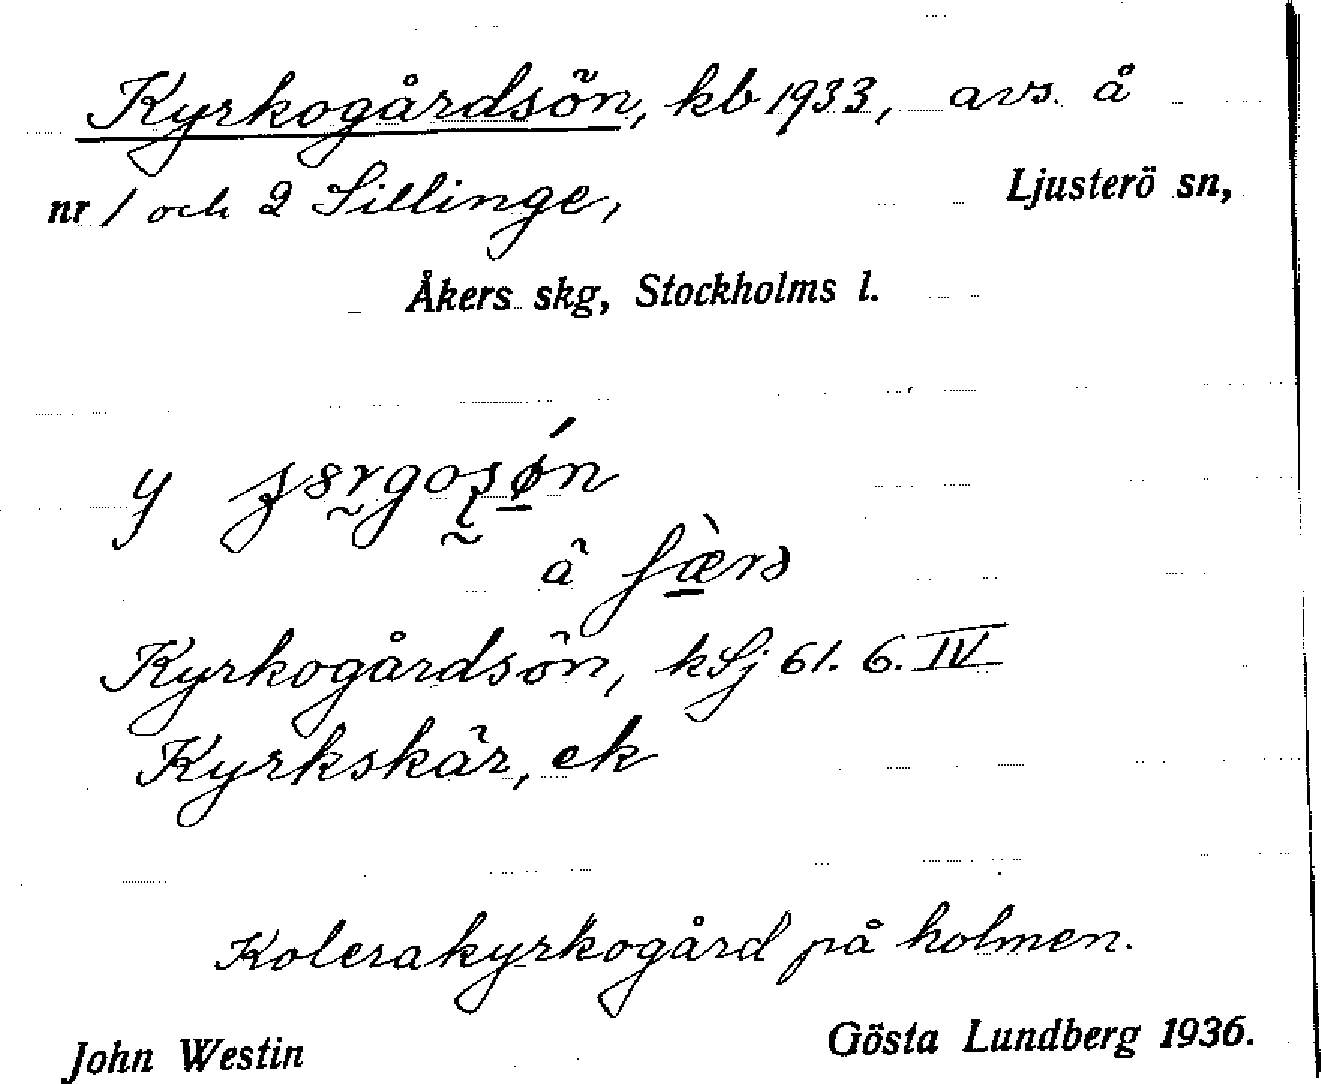 Kyrkogårdsön, kb 1933, avs. å
nr 1 och 2 Sillinge, Ljusterö sn,
Åkers skg, Stockholms l.
y
â
Kyrkogårdsön, kSj 61. 6. IV
Kyrkskär, ek
Kolerakyrkogård på holmen.
John Westin Gösta Lundberg 1936.